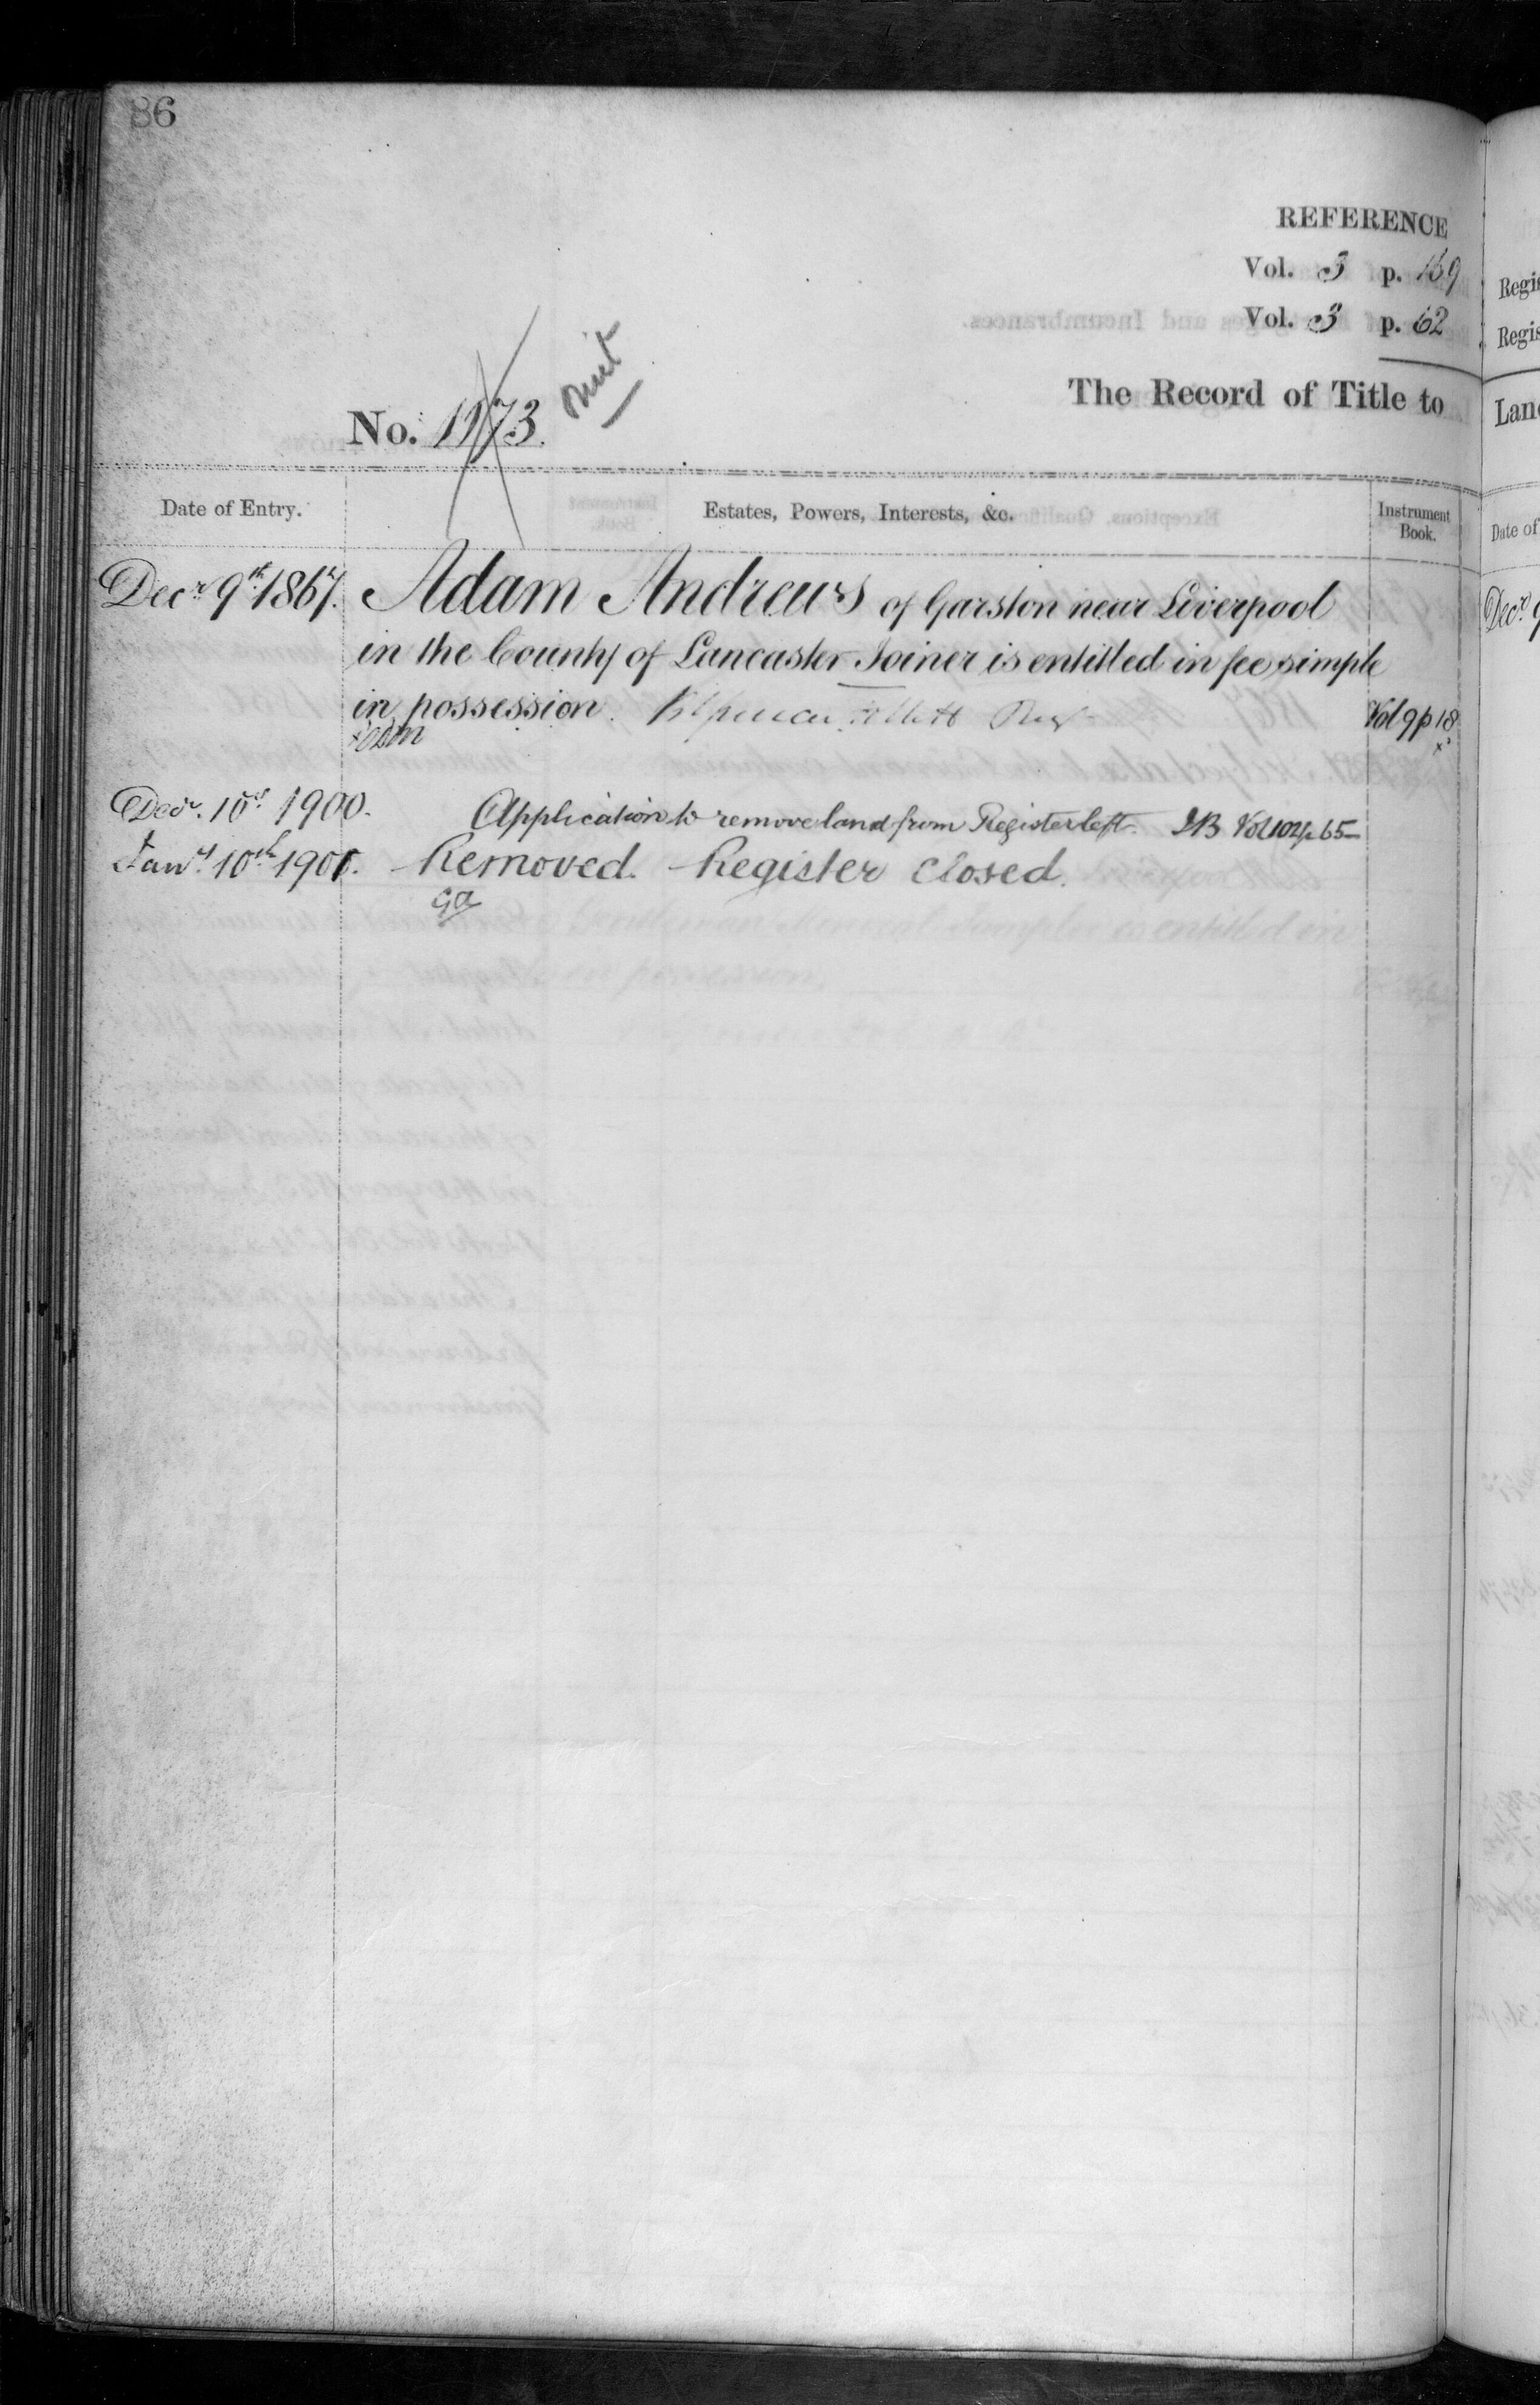 86
REFERENCE
Vol. 3 p. 159
Vol. 3 p. 62
The Record of Title to
No. 1173. Omit
Date of Entry. Estates, Powers, Interests, &c. Instrument Book.
Decr. 9th 1867. Adam Andrews of Garston near Liverpool
in the County of Lancaster Joiner is entitled in fee simple
in possession. Vol 9 p 18
Decr. 10th 1900. Application to remove land from Register left. IB Vol 102 p 65
Jany. 10th 1901. Removed. Register Closed.
Regis
Regis
Land
Date of
Decr. 9